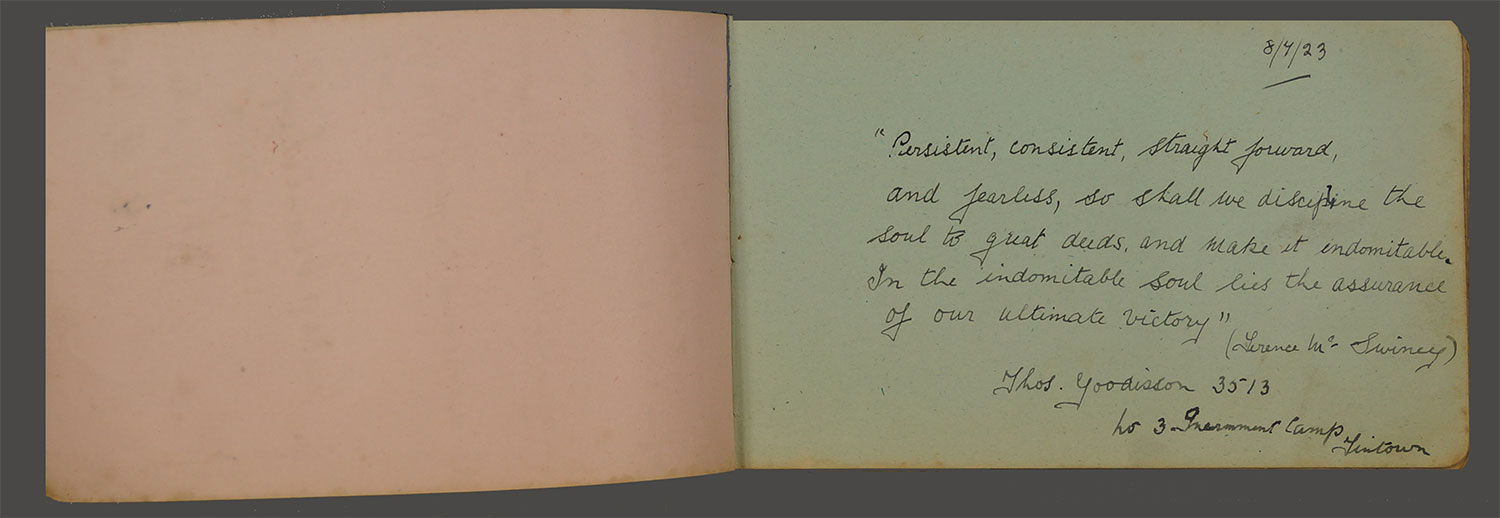 8/7/23
"Persistent, consistent, straight forward,
and fearless, so shall we discipline the
soul to great deeds, and make it indomitable.
In the indomitable soul lies the assurance
of our ultimate victory"
(Terence Mc Swiney)
Thos. Goodisson 3513
No 3 Internment Camp
Tintown